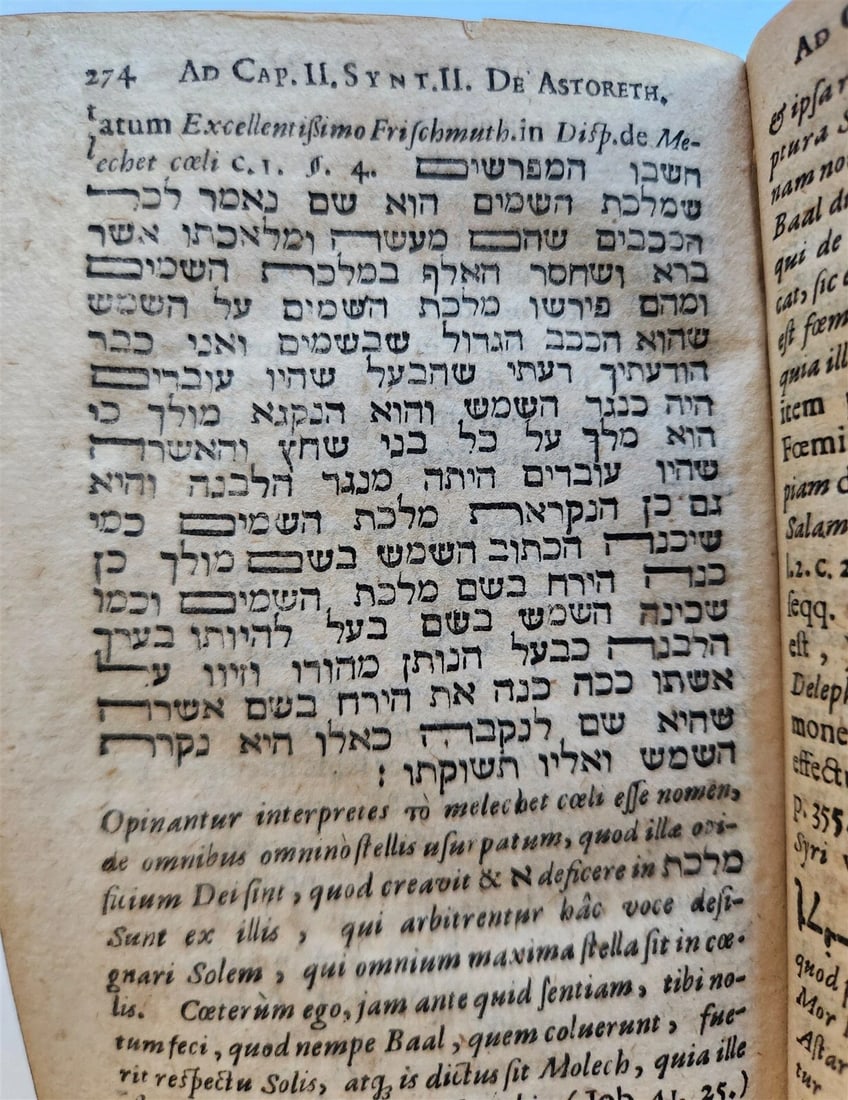 274 AD CAP. II. SYNT. II. DE ASTORETH.
tatum Excellentißimo Friſchmuth. in Diſp. de Me-
lechet cœli c. 1. §. 4. חשבו המפרשים
שמלכת השמים הוא שם נאמר לכל
הככבים שהם מעשה ומלאכתו אשר
ברא ושחסר האלף במלכת השמים
ומהם פירשו מלכת השמים על השמש
שהוא הככב הגדול שבשמים ואני כבר
הודעתיך דעתי שהבעל שהיו עובדים
היה כנגד השמש והוא הנקגא מולך כי
הוא מלך על כל בני שחץ והאשרה
שהיו עובדים היתה מנגד הלבנה והיא
גם כן הנקראת מלכת השמים כמי
שיכנה הכתוב השמש בשם מולך כן
כנה הירח בשם מלכת השמים וכמו
שכינה השמש בשם בעל להיותו בערך
הלבנה כבעל הנותן מהודו וזיוו על
אשתו ככה כנה את הירח בשם אשרה
שהיא שם לנקבה כאלו היא נקרת
השמש ואליו תשוקתו :
Opinantur interpretes τὸ melechet cœli eſſe nomen,
de omnibus omninò ſtellis uſurpatum, quod illæ opi-
ficium Dei ſint, quod creavit & א deficere in מלכת
Sunt ex illis, qui arbitrentur hâc voce deſi-
gnari Solem, qui omnium maxima ſtella ſit in cœ-
lis. Cœterùm ego, jam ante quid ſentiam, tibi no-
tum feci, quod nempe Baal, quem coluerunt, fue-
rit reſpectu Solis, atq; is dictus ſit Molech, quia ille
(Job. 41. 25.)
AD C
& ipſar
ptura S
nam no
Baal d
qui de
cat, ſic
eſt fœm
quia ill
item
Fœmi
piam
Salam
l. 2. c. 2
ſeqq.
eſt,
Deleph
mone
effectu
p. 355.
Syri
quod
Mor
Aſtar
tur